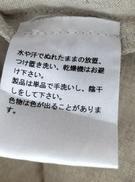 水や汗でぬれたままの放置、
つけ置き洗い、乾燥機はお避
け下さい。
製品は単品で手洗いし、陰干
しをして下さい。
色物は色が出ることがありま
す。